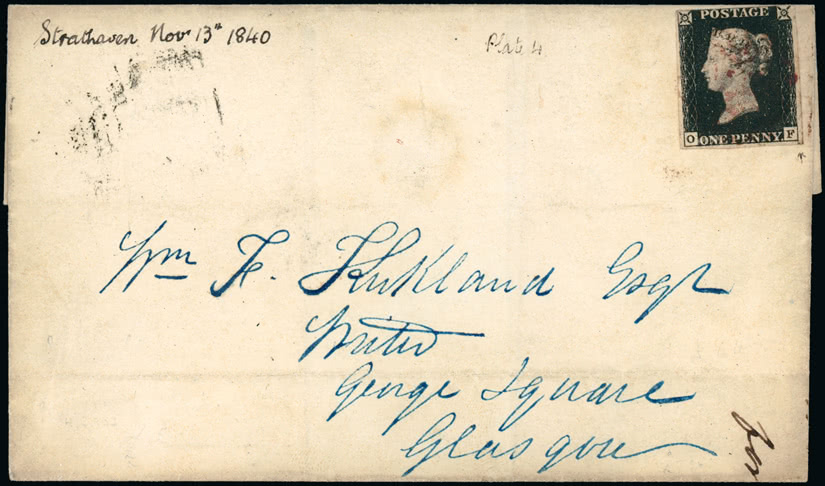 Strathaven Novr 13th 1840
Plate 4
POSTAGE
ONE PENNY
O F
Wm F. Kirkland Esqr
Writer
George Square
Glasgow